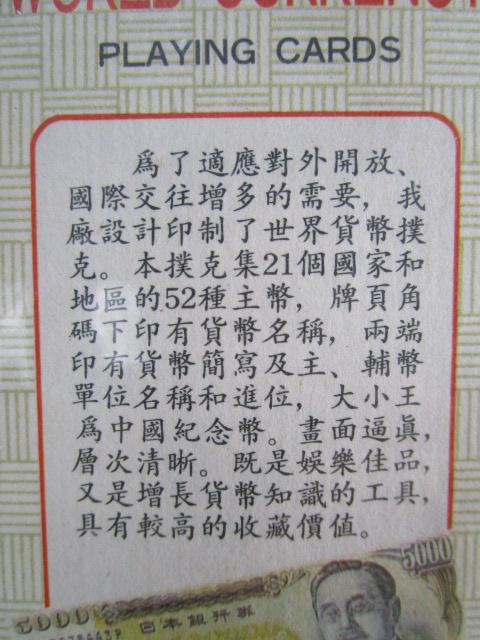 WORLD CURRENCY
PLAYING CARDS
爲了適應對外開放、
國際交往增多的需要，我
廠設計印制了世界貨幣撲
克。本撲克集21個國家和
地區的52種主幣，牌頁角
碼下印有貨幣名稱，兩端
印有貨幣簡寫及主、輔幣
單位名稱和進位，大小王
爲中國紀念幣。畫面逼眞，
層次清晰。既是娛樂佳品，
又是增長貨幣知識的工具，
具有較高的收藏價值。
5000
5000
日本銀行券